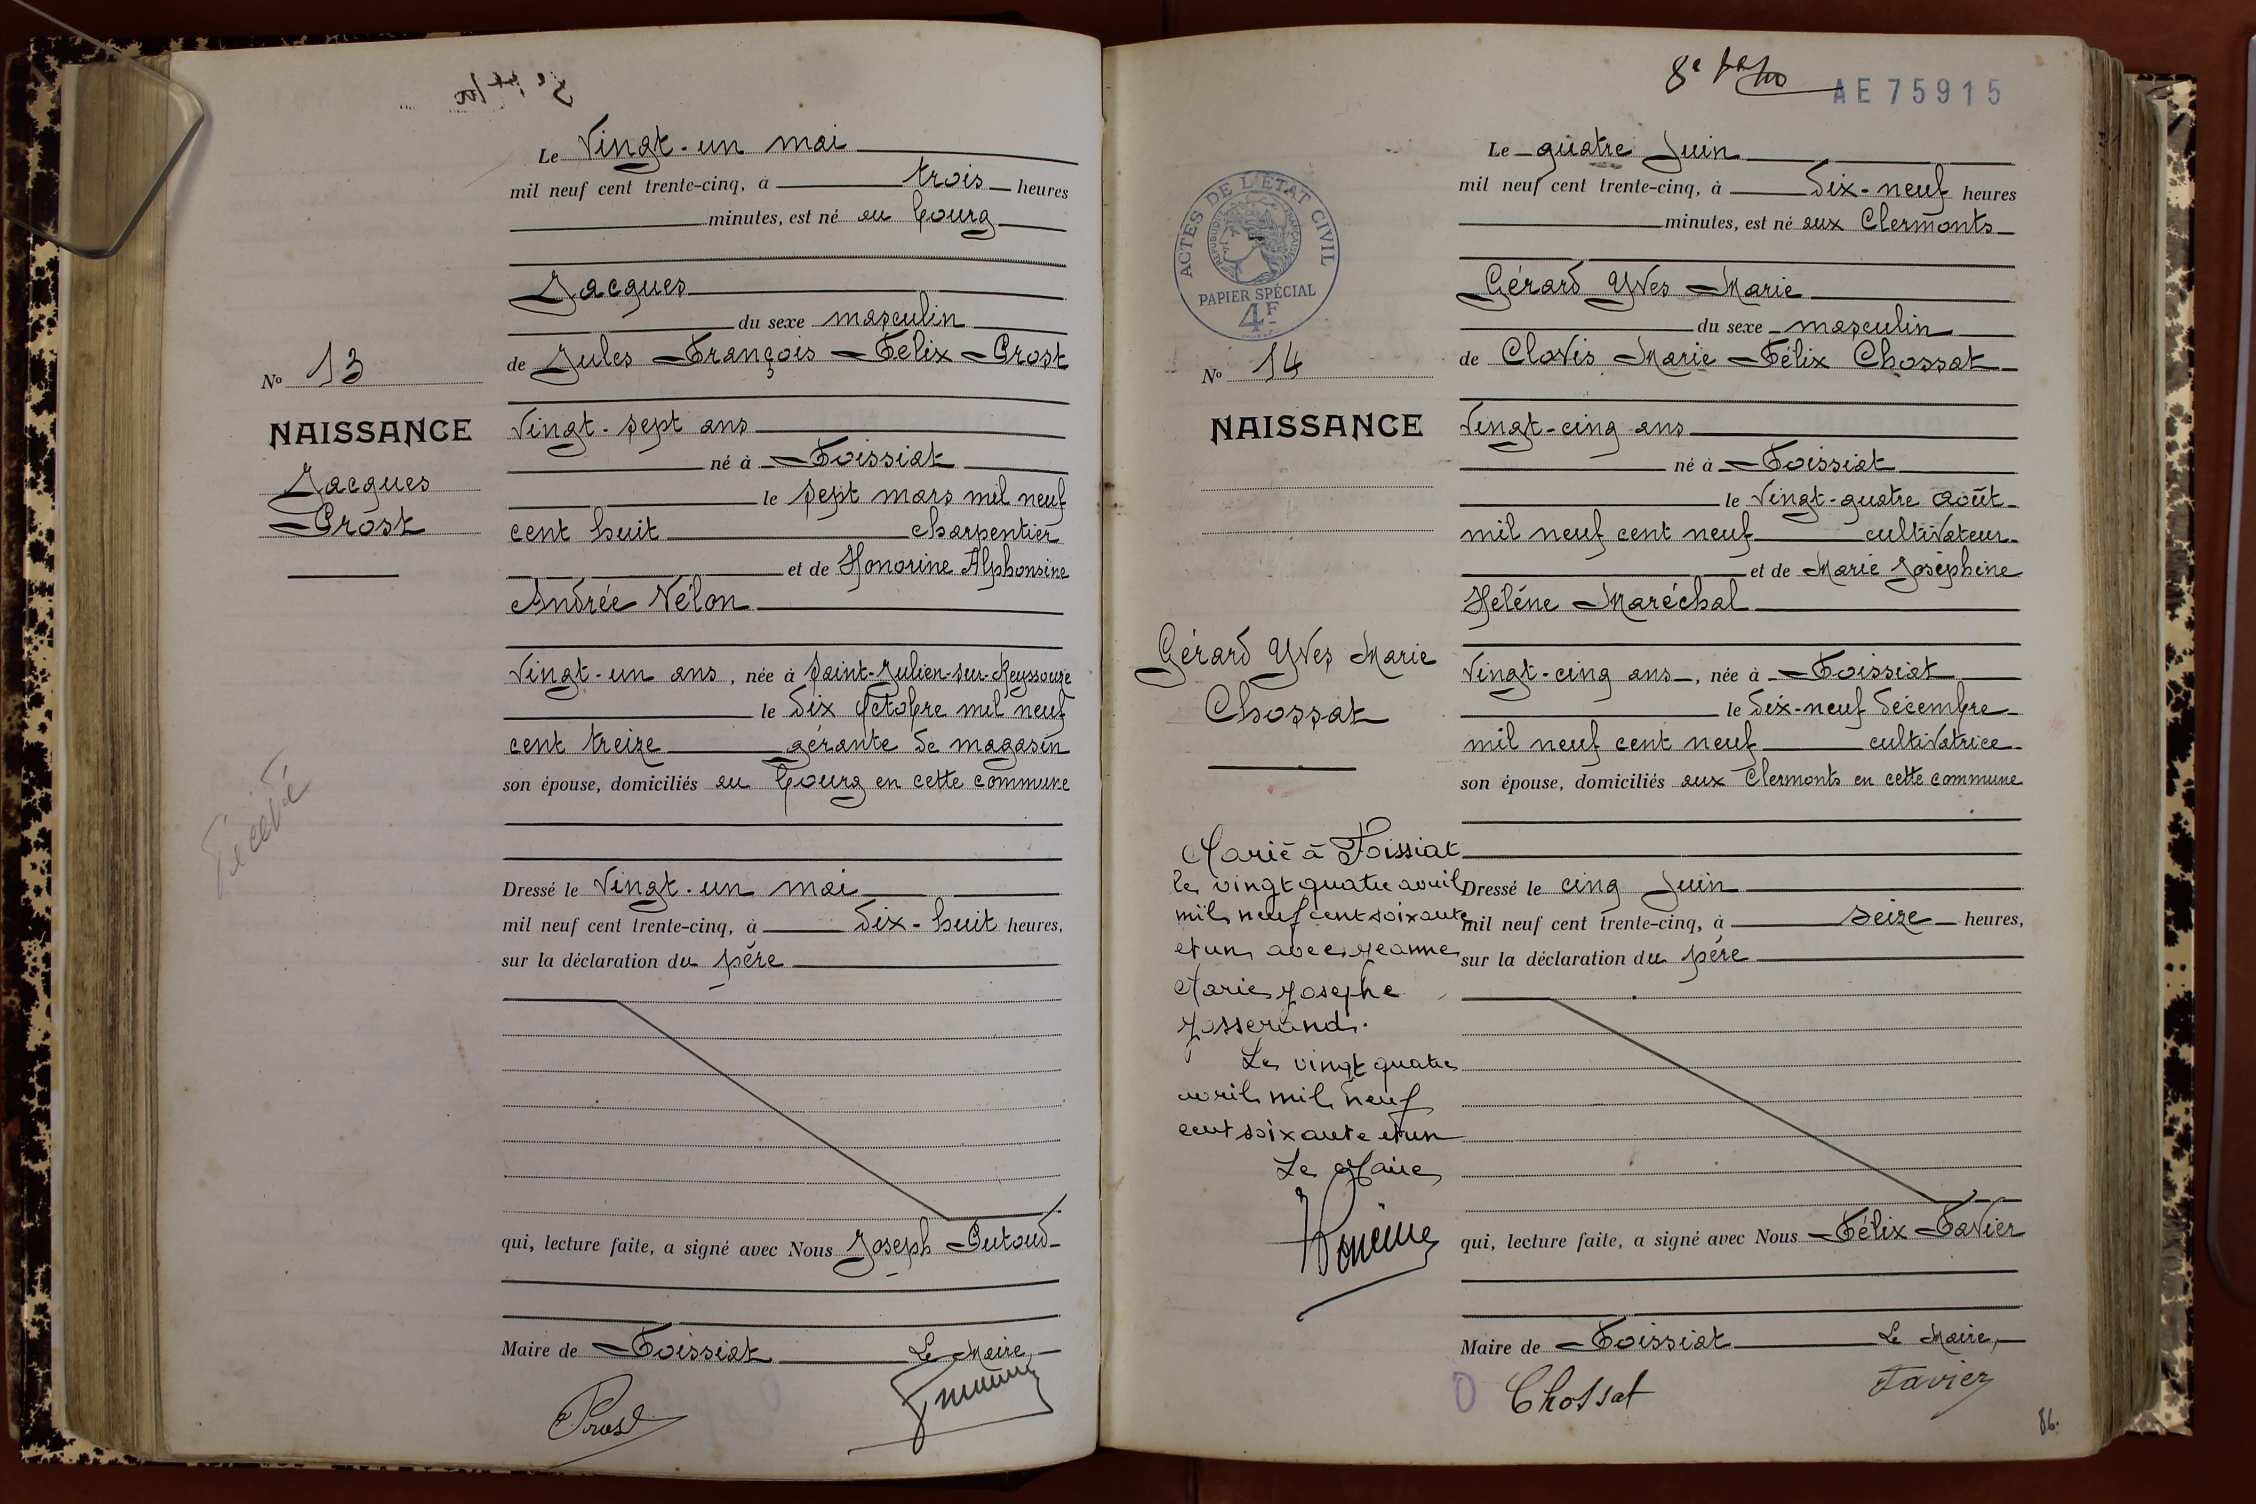 Le Vingt-un mai
mil neuf cent trente-cinq, à trois heures
minutes, est né au bourg
Jacques
du sexe masculin
de Jules François Félix Prost
Vingt-sept ans
né à Foissiat
le sept mars mil neuf
cent huit charpentier
et de Honorine Alphonsine
Andrée Vélon
Vingt-un ans, née à Saint-Julien-sur-Reyssouze
le dix octobre mil neuf
cent treize gérante de magasin
son épouse, domiciliés au bourg en cette commune
Dressé le Vingt-un mai
mil neuf cent trente-cinq, à dix-huit heures,
sur la déclaration du père
qui, lecture faite, a signé avec Nous Joseph
Maire de Foissiat Le Maire,
Prost
No 13
NAISSANCE
Jacques
Prost
Décédé
8e
AE75915
ACTES DE L'ÉTAT CIVIL
RÉPUBLIQUE FRANÇAISE
PAPIER SPÉCIAL
4F
No 14
NAISSANCE
Gérard Yves Marie
Chossat
Marié à Foissiat
le vingt quatre avril
mil neuf cent soixante
et un avec Jeanne
Marie Josephe
Josserand.
Le vingt quatre
avril mil neuf
cent soixante et un
Le Maire
Le quatre Juin
mil neuf cent trente-cinq, à dix-neuf heures
minutes, est né aux Clermonts
Gérard Yves Marie
du sexe masculin
de Clovis Marie Félix Chossat
Vingt-cinq ans
né à Foissiat
le Vingt-quatre août
mil neuf cent neuf cultivateur
et de Marie Joséphine
Hélène Maréchal
Vingt-cinq ans, née à Foissiat
le dix-neuf décembre
mil neuf cent neuf cultivatrice
son épouse, domiciliés aux Clermonts en cette commune
Dressé le cinq Juin
mil neuf cent trente-cinq, à seize heures,
sur la déclaration du père
qui, lecture faite, a signé avec Nous Félix Favier
Maire de Foissiat Le Maire,
Chossat Favier
86.